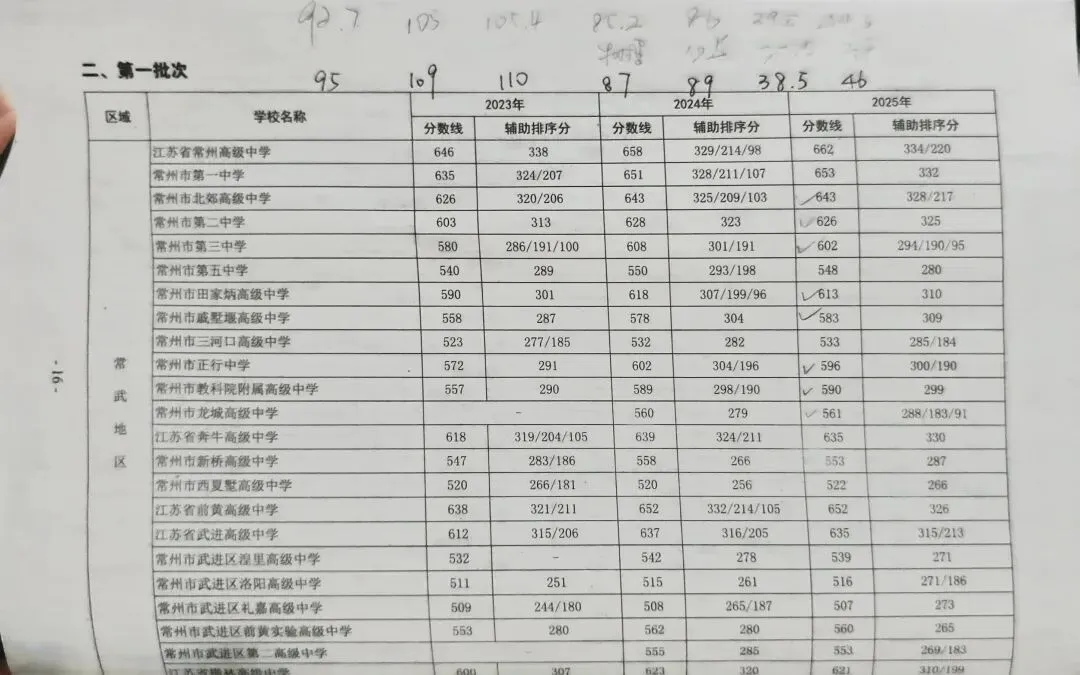 92.7 103 105.4 85.2 86
二、第一批次
95 109 110 87 89 38.5 46
区域 学校名称 2023年 2024年 2025年
分数线 辅助排序分 分数线 辅助排序分 分数线 辅助排序分
江苏省常州高级中学 646 338 658 329/214/98 662 334/220
常州市第一中学 635 324/207 651 328/211/107 653 332
常州市北郊高级中学 626 320/206 643 325/209/103 643 328/217
常州市第二中学 603 313 628 323 626 325
常州市第三中学 580 286/191/100 608 301/191 602 294/190/95
常州市第五中学 540 289 550 293/198 548 280
常州市田家炳高级中学 590 301 618 307/199/96 613 310
常州市戚墅堰高级中学 558 287 578 304 583 309
常州市三河口高级中学 523 277/185 532 282 533 285/184
常州市正行中学 572 291 602 304/196 596 300/190
常州市教科院附属高级中学 557 290 589 298/190 590 299
常州市龙城高级中学 - 560 279 561 288/183/91
江苏省奔牛高级中学 618 319/204/105 639 324/211 635 330
常州市新桥高级中学 547 283/186 558 266 553 287
常州市西夏墅高级中学 520 266/181 520 256 522 266
江苏省前黄高级中学 638 321/211 652 332/214/105 652 326
江苏省武进高级中学 612 315/206 637 316/205 635 315/213
常州市武进区湟里高级中学 532 - 542 278 539 271
常州市武进区洛阳高级中学 511 251 515 261 516 271/186
常州市武进区礼嘉高级中学 509 244/180 508 265/187 507 273
常州市武进区前黄实验高级中学 553 280 562 280 560 265
常州市武进区第二高级中学 - 555 285 553 269/183
600 307 623 320 621 310/199
常武地区
- 16 -